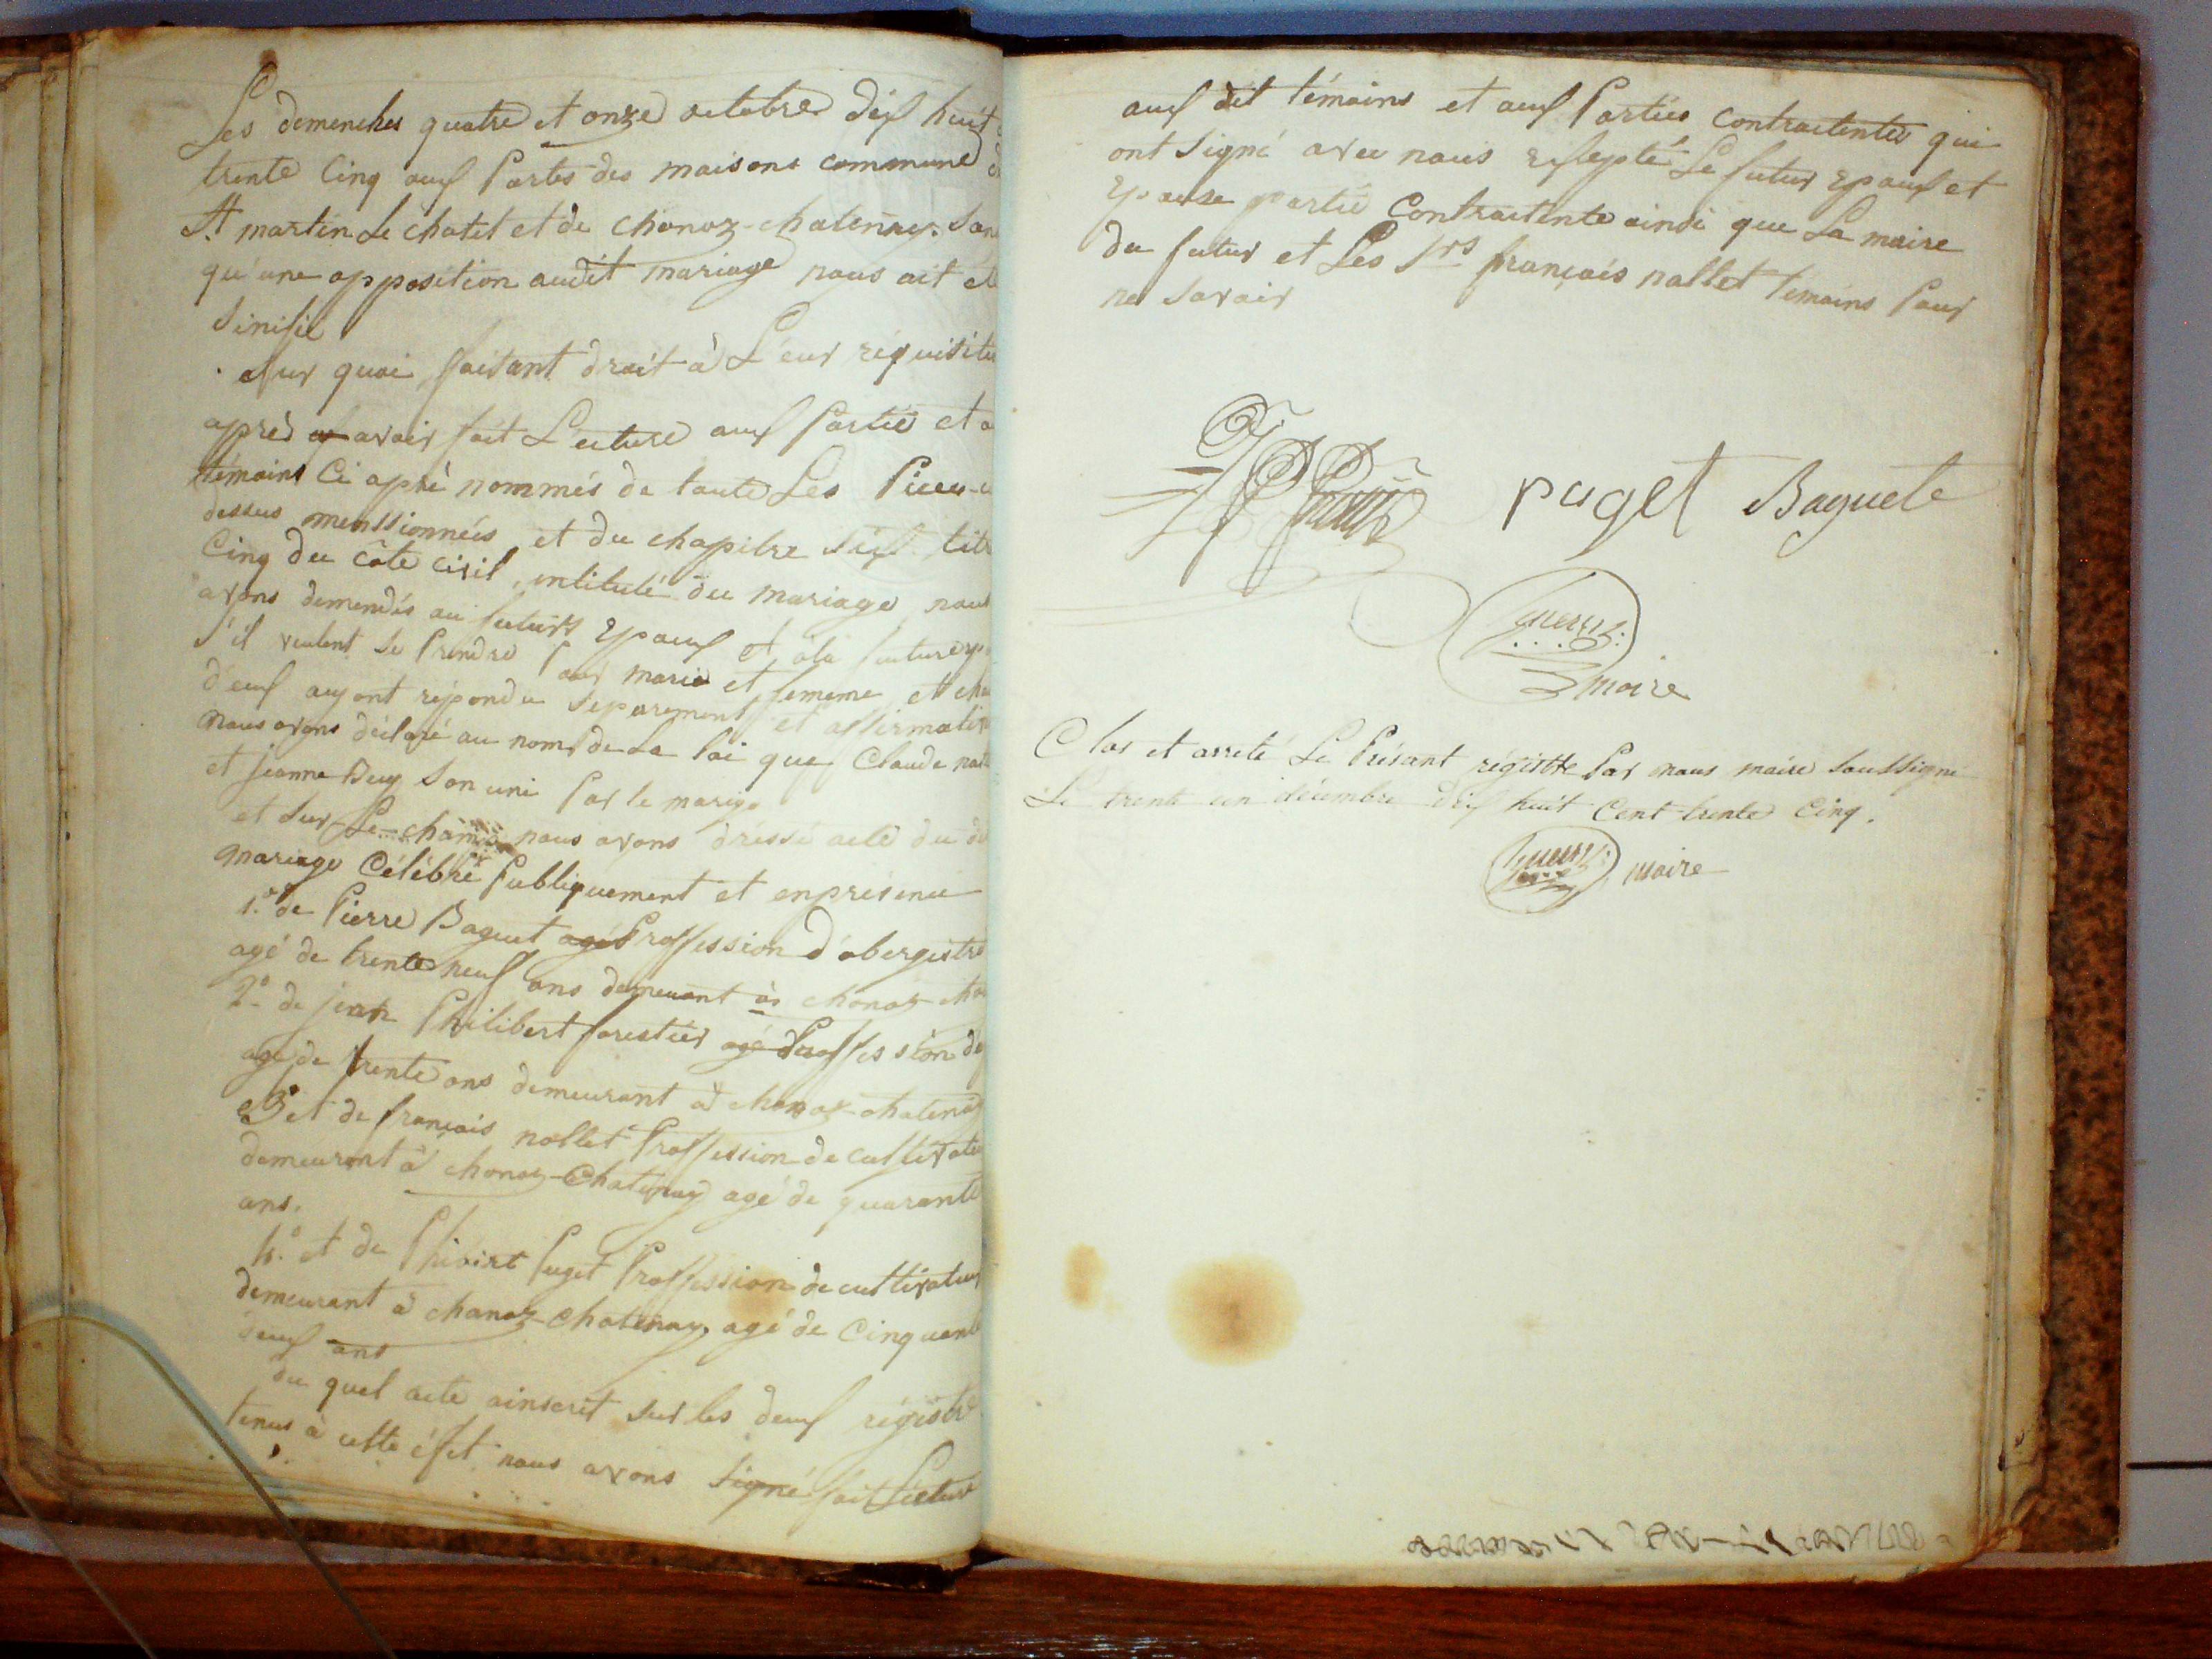 Les demenches quatre et onze octobre dix huit
trente Cinq aux Portes des maisons commune
St martin Le chatel et de chonoz-chatennay. San
qu'une opposition audit mariage nous ait été
sinifié
Sur quoi faisant droit à L'eur réquisitio
après avoir fait L'ecture aux Partie et a
témoins Ci aprè nommés de toute Les Pieces-c
dessus menssionnées et du chapitre six titr
Cinq du côte civil, intitulé du mariage, nous
avons demendés au futurs Epoux et à la future ep
s'il veulent se Prendre Pour marie et femme et cha
d'eux ayant répondu séparement et affirmativ
nous avons déclaré au nom de La loi que Claude nall
et jeanne Buy Son uni Par le marige
et Sur-Le-champ nous avons dréssé acte du di
mariage Célébré Publiquement et enprésence
1.° de Pierre Baguet agé Proffession d'obergistre
agé de trente neuf ans demeurant à chonoz-cha
2.° de jean Philibert forestier agé Proffession de
agé de trente ans demeurant à chonoz-chatenay
3° et de françois nallet Proffession de cultivateu
demeurant à chonoz-Chatenay agé de quarante
ans.
4.° et de Phibirt Puget Proffession de cultivateur
demeurant à chanoz-chatenay, agé de Cinquante
deux ans
du quel acte ainscrit sur les deux régistre
tenus à cette éfet nous avons signé fait Lecture
aux dit témoins et aux Parties contractentes qui
ont Signé avec nous exsepté Le futur Epoux et
Epouse partie Contractente ainsi que La maire
du futur et Les Srs françois nallet temoins Pour
ne Savoir
puget Baguete
maire
Clos et arreté Le Présant régistre Par nous maire Soussigné
Le trente un décembre dix huit Cent trente Cinq.
maire